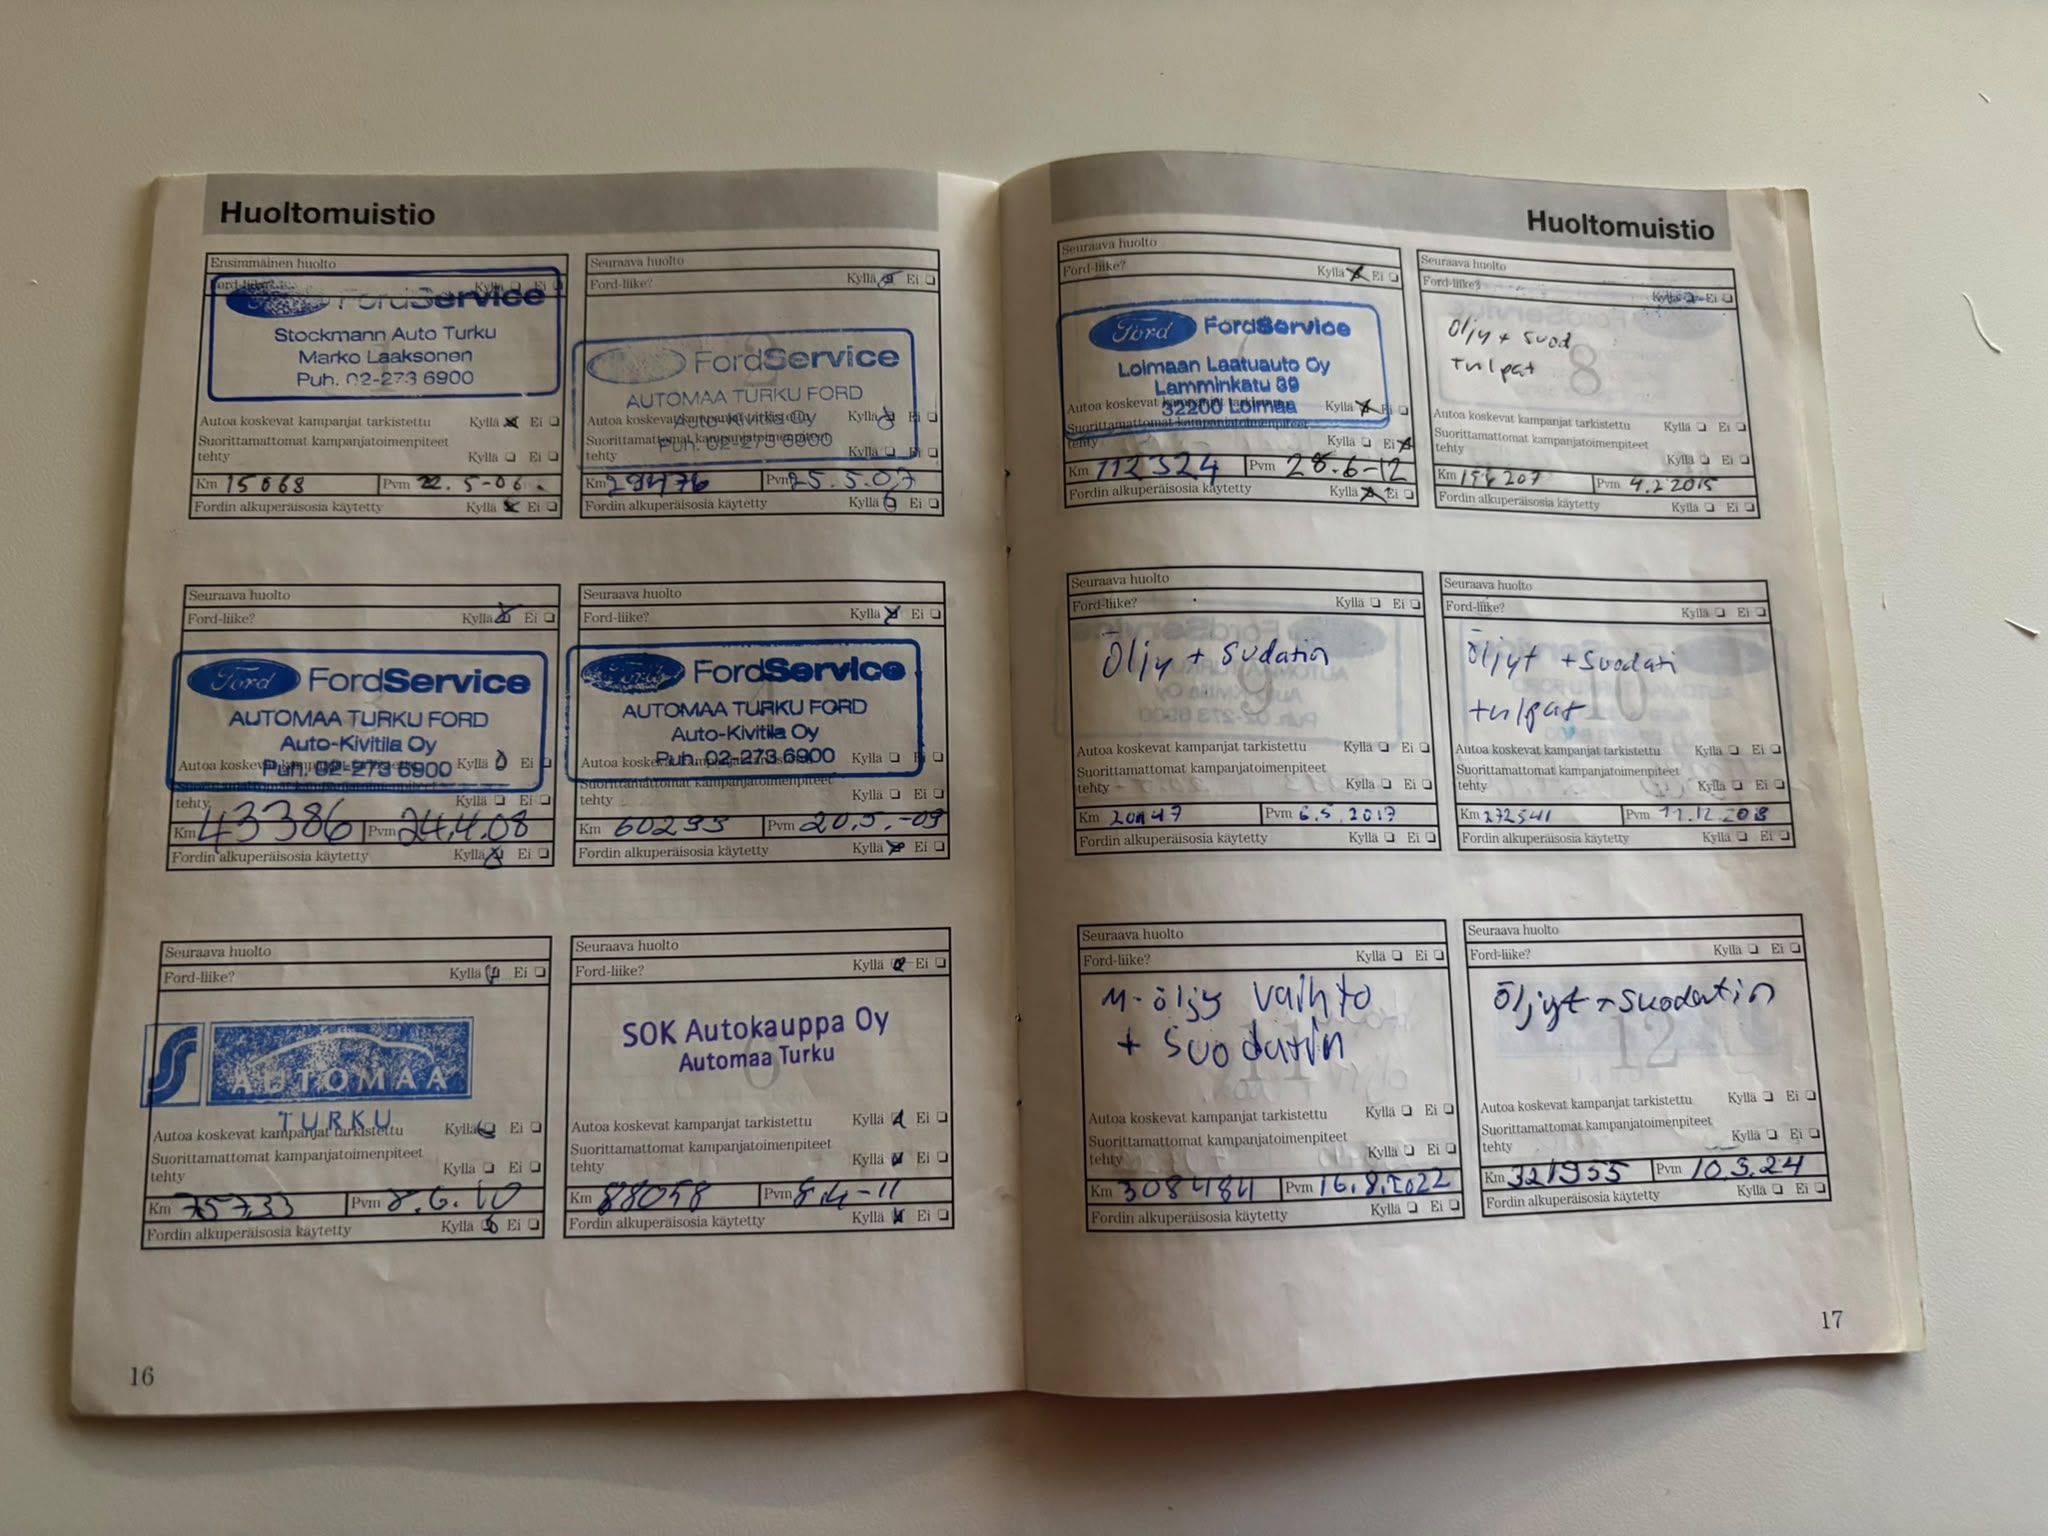 Huoltomuistio
Ensimmäinen huolto
Ford-liike? Kyllä Ei
FordService
Stockmann Auto Turku
Marko Laaksonen
Puh. 02-273 6900
Autoa koskevat kampanjat tarkistettu Kyllä Ei
Suorittamattomat kampanjatoimenpiteet
tehty Kyllä Ei
Km 15068 Pvm 22.5-06.
Fordin alkuperäisosia käytetty Kyllä Ei
Seuraava huolto
Ford-liike? Kyllä Ei
2
FordService
AUTOMAA TURKU FORD
Auto-Kivitila Oy
Puh. 02-273 6900
Autoa koskevat kampanjat tarkistettu Kyllä Ei
Suorittamattomat kampanjatoimenpiteet
tehty Kyllä Ei
Km 29476 Pvm 25.5.07
Fordin alkuperäisosia käytetty Kyllä Ei
Seuraava huolto
Ford-liike? Kyllä Ei
Ford FordService
AUTOMAA TURKU FORD
Auto-Kivitila Oy
Puh. 02-273 6900
Autoa koskevat kampanjat tarkistettu Kyllä Ei
Suorittamattomat kampanjatoimenpiteet
tehty Kyllä Ei
Km 43386 Pvm 24.4.08
Fordin alkuperäisosia käytetty Kyllä Ei
Seuraava huolto
Ford-liike? Kyllä Ei
Ford FordService
AUTOMAA TURKU FORD
Auto-Kivitila Oy
Puh. 02-273 6900
Autoa koskevat kampanjat tarkistettu Kyllä Ei
Suorittamattomat kampanjatoimenpiteet
tehty Kyllä Ei
Km 60293 Pvm 20.5.-09
Fordin alkuperäisosia käytetty Kyllä Ei
Seuraava huolto
Ford-liike? Kyllä Ei
AUTOMAA
TURKU
Autoa koskevat kampanjat tarkistettu Kyllä Ei
Suorittamattomat kampanjatoimenpiteet
tehty Kyllä Ei
Km 75733 Pvm 8.6.10
Fordin alkuperäisosia käytetty Kyllä Ei
Seuraava huolto
Ford-liike? Kyllä Ei
SOK Autokauppa Oy
Automaa Turku
6
Autoa koskevat kampanjat tarkistettu Kyllä Ei
Suorittamattomat kampanjatoimenpiteet
tehty Kyllä Ei
Km 88058 Pvm 8.4-11
Fordin alkuperäisosia käytetty Kyllä Ei
16
Huoltomuistio
Seuraava huolto
Ford-liike? Kyllä Ei
Ford FordService
Loimaan Laatuauto Oy
Lamminkatu 39
32200 Loimaa
Autoa koskevat kampanjat tarkistettu Kyllä Ei
Suorittamattomat kampanjatoimenpiteet
tehty Kyllä Ei
Km 112324 Pvm 28.6-12
Fordin alkuperäisosia käytetty Kyllä Ei
Seuraava huolto
Ford-liike? Kyllä Ei
Öljy + suod
tulpat
8
Autoa koskevat kampanjat tarkistettu Kyllä Ei
Suorittamattomat kampanjatoimenpiteet
tehty Kyllä Ei
Km Pvm 4.2 2015
Fordin alkuperäisosia käytetty Kyllä Ei
Seuraava huolto
Ford-liike? Kyllä Ei
Öljy + Sudatin
9
Autoa koskevat kampanjat tarkistettu Kyllä Ei
Suorittamattomat kampanjatoimenpiteet
tehty Kyllä Ei
Km Pvm 6.5.2017
Fordin alkuperäisosia käytetty Kyllä Ei
Seuraava huolto
Ford-liike? Kyllä Ei
Öljyt + suodati
tulpat
10
Autoa koskevat kampanjat tarkistettu Kyllä Ei
Suorittamattomat kampanjatoimenpiteet
tehty Kyllä Ei
Km 272541 Pvm 11.12.2018
Fordin alkuperäisosia käytetty Kyllä Ei
Seuraava huolto
Ford-liike? Kyllä Ei
M-öljy vaihto
+ Suodatin
11
Autoa koskevat kampanjat tarkistettu Kyllä Ei
Suorittamattomat kampanjatoimenpiteet
tehty Kyllä Ei
Km 308484 Pvm 16.8.2022
Fordin alkuperäisosia käytetty Kyllä Ei
Seuraava huolto
Ford-liike? Kyllä Ei
Öljyt + suodatin
12
Autoa koskevat kampanjat tarkistettu Kyllä Ei
Suorittamattomat kampanjatoimenpiteet
tehty Kyllä Ei
Km 321955 Pvm 10.3.24
Fordin alkuperäisosia käytetty Kyllä Ei
17